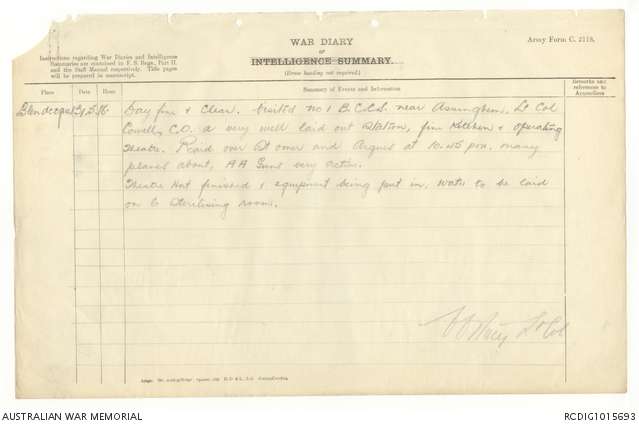 WAR DIARY
or
INTELLIGENCE SUMMARY.
(Erase heading not required.)
Army Form C. 2118.
Instructions regarding War Diaries and Intelligence
Summaries are contained in F. S. Regs., Part II.
and the Staff Manual respectively. Title pages
will be prepared in manuscript.
Place Date Hour Summary of Events and Information Remarks and
references to
Appendices
Day fine & clear. Visited No 1 B.C.C.S. near Lt Col
Cowell, C.O. a very well laid out Station, fine Kitchen & operating
Theatre. Raid over St Omer and at 10.45 pm. many
planes about, AA Guns very active.
Theatre Hut finished & equipment being put in, water to be laid
on to Sterilising room.
Lt Col
AUSTRALIAN WAR MEMORIAL
RCDIG1015693